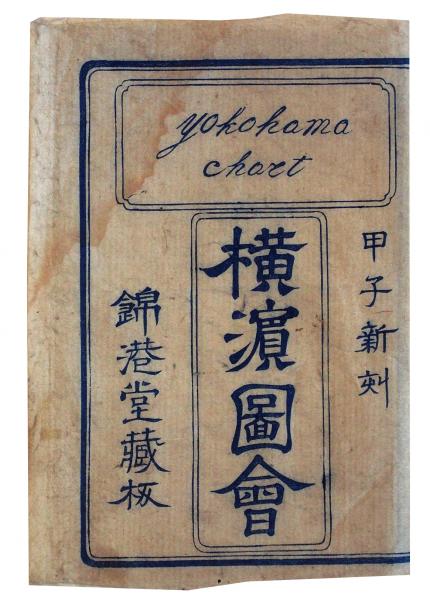 yokohama
chart
甲子新刻
橫濵圖會
錦港堂藏板